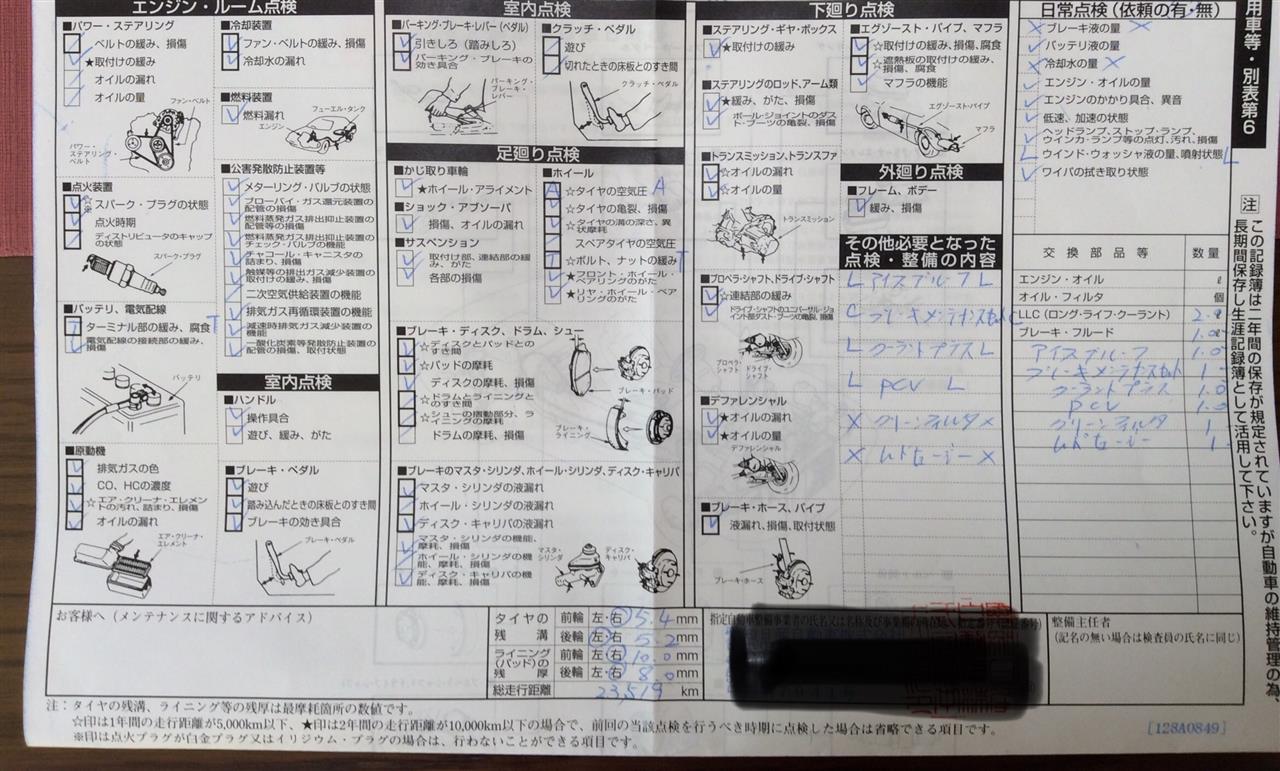 エンジン・ルーム点検
■パワー・ステアリング
ベルトの緩み、損傷
★取付けの緩み
オイルの漏れ
オイルの量
ファン・ベルト
パワー・ステアリング・ベルト
■点火装置
☆※スパーク・プラグの状態
点火時期
ディストリビュータのキャップの状態
スパーク・プラグ
■バッテリ、電気配線
ターミナル部の緩み、腐食
電気配線の接続部の緩み、損傷
バッテリ
■原動機
排気ガスの色
CO、HCの濃度
☆エア・クリーナ・エレメントの汚れ、詰まり、損傷
オイルの漏れ
エア・クリーナ・エレメント
■冷却装置
ファン・ベルトの緩み、損傷
冷却水の漏れ
■燃料装置
燃料漏れ
フューエル・タンク
エンジン
■公害発散防止装置等
メターリング・バルブの状態
ブローバイ・ガス還元装置の配管の損傷
燃料蒸発ガス排出抑止装置の配管等の損傷
燃料蒸発ガス排出抑止装置のチェック・バルブの機能
チャコール・キャニスタの詰まり、損傷
触媒等の排出ガス減少装置の取付けの緩み、損傷
二次空気供給装置の機能
排気ガス再循環装置の機能
減速時排気ガス減少装置の機能
一酸化炭素等発散防止装置の配管の損傷、取付状態
室内点検
■ハンドル
操作具合
遊び、緩み、がた
■ブレーキ・ペダル
遊び
踏み込んだときの床板とのすき間
ブレーキの効き具合
ブレーキ・ペダル
室内点検
■パーキング・ブレーキ・レバー(ペダル)
引きしろ(踏みしろ)
パーキング・ブレーキの効き具合
パーキング・ブレーキ・レバー
■クラッチ・ペダル
遊び
切れたときの床板とのすき間
クラッチ・ペダル
足廻り点検
■かじ取り車輪
★ホイール・アライメント
■ショック・アブソーバ
損傷、オイルの漏れ
■サスペンション
取付け部、連結部の緩み、がた
各部の損傷
■ホイール
☆タイヤの空気圧
☆タイヤの亀裂、損傷
☆タイヤの溝の深さ、異状摩耗
スペアタイヤの空気圧
☆ボルト、ナットの緩み
★フロント・ホイール・ベアリングのがた
★リヤ・ホイール・ベアリングのがた
■ブレーキ・ディスク、ドラム、シュー
☆ディスクとパッドとのすき間
☆パッドの摩耗
ディスクの摩耗、損傷
☆ドラムとライニングとのすき間
☆シューの摺動部分、ライニングの摩耗
ドラムの摩耗、損傷
ブレーキ・パッド
ブレーキ・ライニング
■ブレーキのマスタ・シリンダ、ホイール・シリンダ、ディスク・キャリパ
マスタ・シリンダの液漏れ
ホイール・シリンダの液漏れ
ディスク・キャリパの液漏れ
マスタ・シリンダの機能、摩耗、損傷
ホイール・シリンダの機能、摩耗、損傷
ディスク・キャリパの機能、摩耗、損傷
マスタ・シリンダ
ディスク・キャリパ
下廻り点検
■ステアリング・ギヤ・ボックス
★取付けの緩み
■ステアリングのロッド、アーム類
★緩み、がた、損傷
ボール・ジョイントのダスト・ブーツの亀裂、損傷
■トランスミッション、トランスファ
☆オイルの漏れ
☆オイルの量
トランスミッション
■プロペラ・シャフト、ドライブ・シャフト
☆連結部の緩み
ドライブ・シャフトのユニバーサル・ジョイント部ダスト・ブーツの亀裂、損傷
プロペラ・シャフト
ドライブ・シャフト
■デファレンシャル
★オイルの漏れ
★オイルの量
デファレンシャル
■ブレーキ・ホース、パイプ
液漏れ、損傷、取付状態
ブレーキ・ホース
■エグゾースト・パイプ、マフラ
☆取付けの緩み、損傷、腐食
☆遮熱板の取付けの緩み、損傷、腐食
マフラの機能
エグゾースト・パイプ
マフラ
外廻り点検
■フレーム、ボデー
緩み、損傷
その他必要となった点検・整備の内容
L アイスブルーフ L
C ブレーキメンテナンスセット C
L クーラントプラス L
L PCV L
× クリーンフィルタ ×
× ムドヒュージー ×
日常点検(依頼の有・無)
× ブレーキ液の量 ×
バッテリ液の量
× 冷却水の量 ×
エンジン・オイルの量
エンジンのかかり具合、異音
低速、加速の状態
ヘッドランプ、ストップ・ランプ、ウインカ・ランプ等の点灯、汚れ、損傷
L ウインド・ウォッシャ液の量、噴射状態 L
ワイパの拭き取り状態
交換部品等 数量
エンジン・オイル ℓ
オイル・フィルタ 個
LLC(ロング・ライフ・クーラント) 2.ℓ
ブレーキ・フルード 1.0ℓ
アイスブルーフ 1.0
ブレーキメンテナンスセット 1.-
クーラントプラス 1.0
PCV 1.0
クリーンフィルタ 1
ムドヒュージー 1-
用車等・別表第6
注 この記録簿は二年間の保存が規定されていますが自動車の維持管理の為、
長期間保存し生涯記録簿として活用して下さい。
お客様へ(メンテナンスに関するアドバイス)
タイヤの残溝 前輪 左・右 5.4 mm
後輪 左・右 5.2 mm
ライニング(パッド)の残厚 前輪 左・右 10.0 mm
後輪 左・右 8.0 mm
総走行距離 23,519 km
整備主任者
(記名の無い場合は検査員の氏名に同じ)
注:タイヤの残溝、ライニング等の残厚は最摩耗箇所の数値です。
☆印は1年間の走行距離が5,000km以下、★印は2年間の走行距離が10,000km以下の場合で、前回の当該点検を行うべき時期に点検した場合は省略できる項目です。
※印は点火プラグが白金プラグ又はイリジウム・プラグの場合は、行わないことができる項目です。
[128A0849]